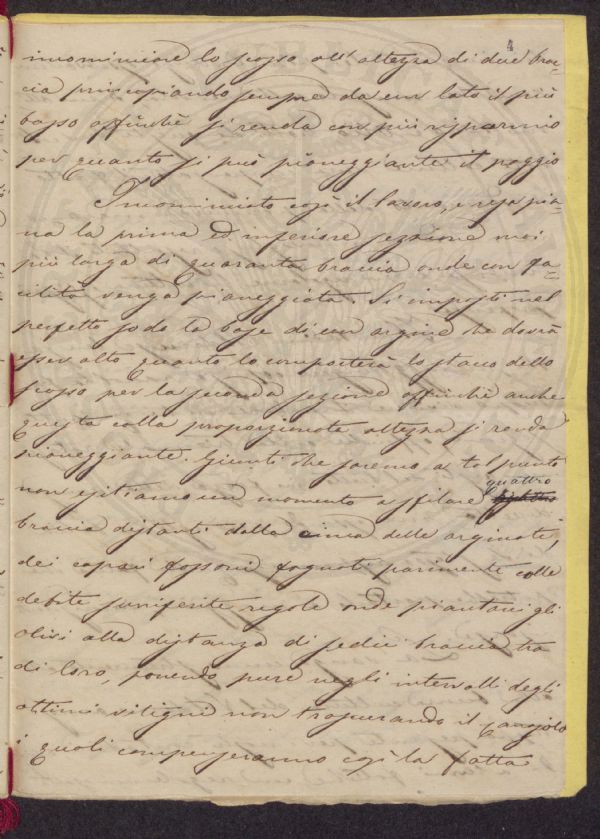 4
incominciare lo scasso all'altezza di due brac-
cia principiando sempre da un lato il più
basso affinchè si renda con più risparmio
per quanto si può pianeggiante il poggio
Incominciato così il lavoro, e resa pia-
na la prima ed inferiore sezione mai
più larga di quaranta braccia onde con fa-
cilità venga pianeggiata. Si imposti nel
perfetto sodo la base di un argine che dovrà
esser alto quanto lo comporterà lo stacco dello
scasso per la seconda sezione affinchè anche
questa colla proporzionata altezza si renda
pianeggiante. Giunti che saremo a tal punto
non esitiamo un momento affilare quattro
braccia distanti dalla cima delle arginate,
dei capaci fossoni fognati parimente colle
debite surriferite regole onde piantavi gli
olivi alla distanza di sedici braccia tra
di loro, ponendo pure negli intervalli degli
ottimi vitigni non trascurando il
i quali compenseranno così la fatta